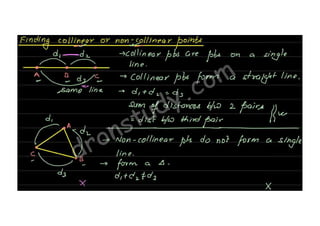 Finding collinear or non-collinear points
d₁ d₂
→ collinear pts are pts on a single
line.
A B C
d₃
→ Collinear pts forms a straight line.
same line → d₁+d₂=d₃
Sum of distances b/w 2 pairs
= dist b/w third pair
d₁
A
d₂
C
B
d₃
→ Non-collinear pts do not form a single
line.
→ form a Δ.
d₁+d₂≠d₃
x
x
dronstudy.com